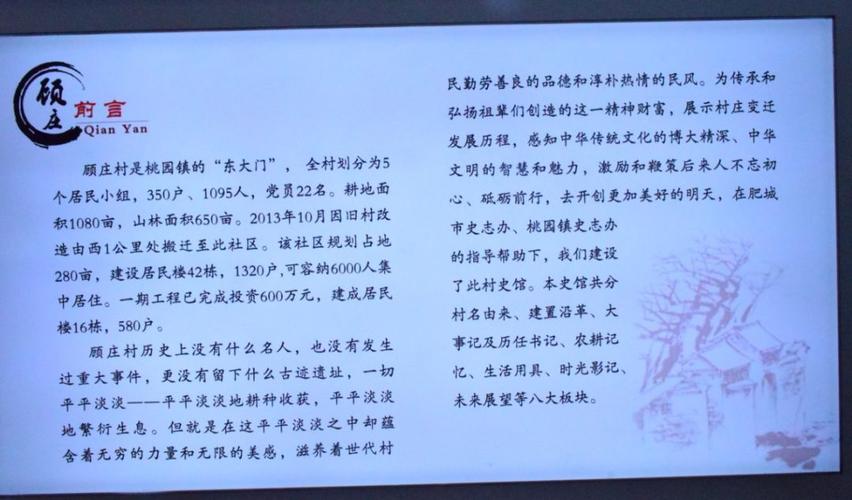 顾庄
前言
Qian Yan
顾庄村是桃园镇的“东大门”，全村划分为5
个居民小组，350户、1095人，党员22名。耕地面
积1080亩，山林面积650亩。2013年10月因旧村改
造由西1公里处搬迁至此社区。该社区规划占地
280亩，建设居民楼42栋，1320户,可容纳6000人集
中居住。一期工程已完成投资600万元，建成居民
楼16栋，580户。
顾庄村历史上没有什么名人，也没有发生
过重大事件，更没有留下什么古迹遗址，一切
平平淡淡——平平淡淡地耕种收获，平平淡淡
地繁衍生息。但就是在这平平淡淡之中却蕴
含着无穷的力量和无限的美感，滋养着世代村
民勤劳善良的品德和淳朴热情的民风。为传承和
弘扬祖辈们创造的这一精神财富，展示村庄变迁
发展历程，感知中华传统文化的博大精深、中华
文明的智慧和魅力，激励和鞭策后来人不忘初
心、砥砺前行，去开创更加美好的明天，在肥城
市史志办、桃园镇史志办
的指导帮助下，我们建设
了此村史馆。本史馆共分
村名由来、建置沿革、大
事记及历任书记、农耕记
忆、生活用具、时光影记、
未来展望等八大板块。